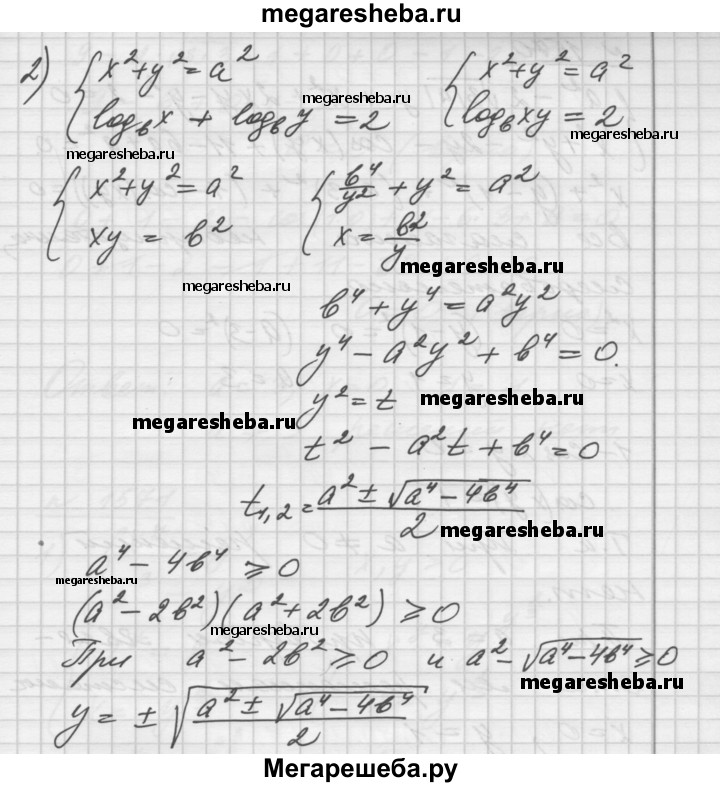 megaresheba.ru
2) { x² + y² = a² { x² + y² = a²
log_b x + log_b y = 2 log_b xy = 2
megaresheba.ru
megaresheba.ru
megaresheba.ru
{ x² + y² = a² { b⁴/y² + y² = a²
xy = b² x = b²/y
megaresheba.ru
megaresheba.ru
b⁴ + y⁴ = a²y²
y⁴ - a²y² + b⁴ = 0.
y² = t megaresheba.ru
megaresheba.ru
t² - a²t + b⁴ = 0
t₁,₂ = (a² ± √(a⁴ - 4b⁴))/2
megaresheba.ru
a⁴ - 4b⁴ ⩾ 0
megaresheba.ru
(a² - 2b²)(a² + 2b²) ⩾ 0
megaresheba.ru
При a² - 2b² ⩾ 0 и a² - √(a⁴ - 4b⁴) ⩾ 0
megaresheba.ru
y = ± √((a² ± √(a⁴ - 4b⁴))/2)
Мегарешеба.ру